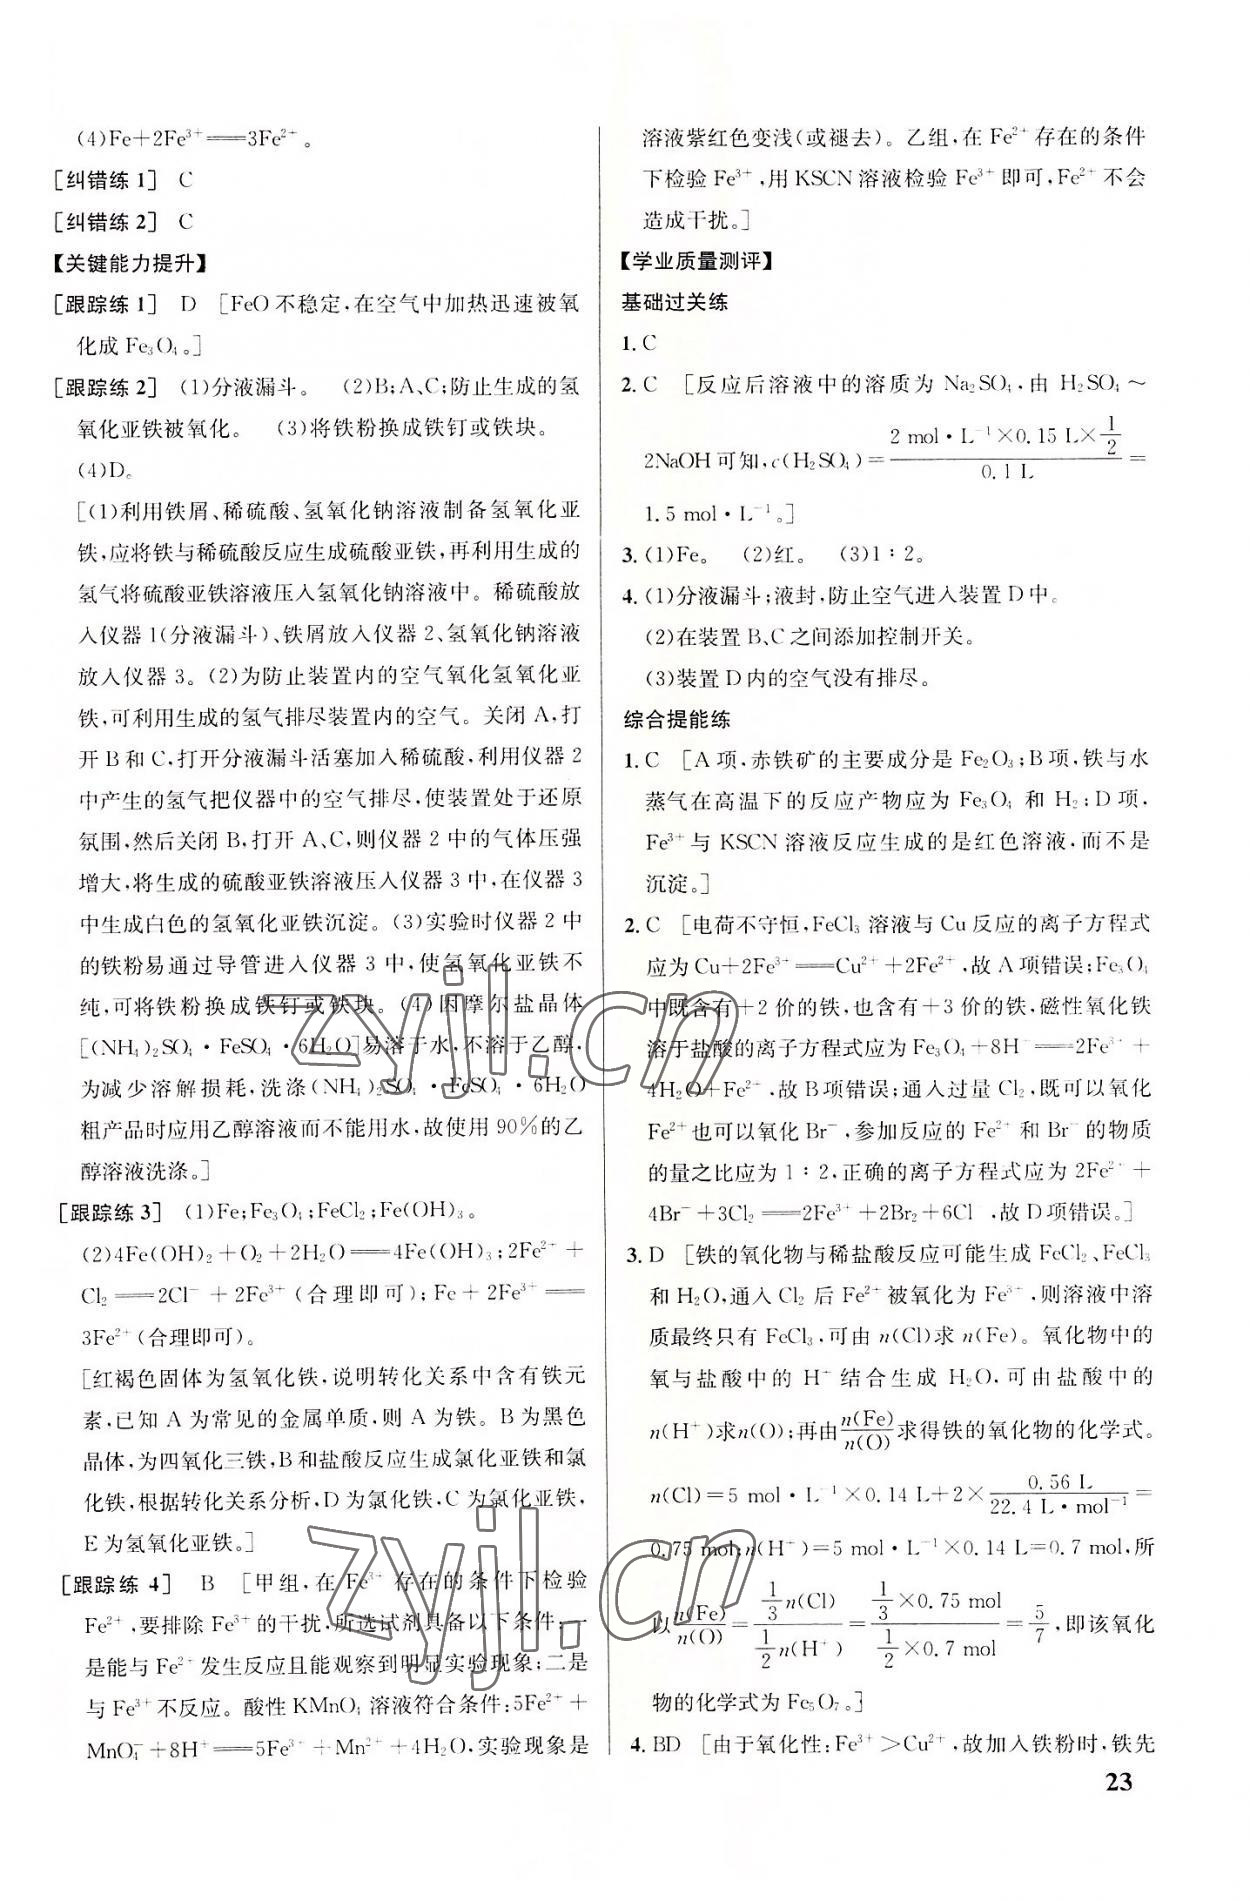 (4)Fe+2Fe³⁺══3Fe²⁺。
[纠错练1] C
[纠错练2] C
【关键能力提升】
[跟踪练1] D [FeO不稳定,在空气中加热迅速被氧
化成Fe₃O₄。]
[跟踪练2] (1)分液漏斗。 (2)B;A、C;防止生成的氢
氧化亚铁被氧化。 (3)将铁粉换成铁钉或铁块。
(4)D。
[(1)利用铁屑、稀硫酸、氢氧化钠溶液制备氢氧化亚
铁,应将铁与稀硫酸反应生成硫酸亚铁,再利用生成的
氢气将硫酸亚铁溶液压入氢氧化钠溶液中。稀硫酸放
入仪器1(分液漏斗)、铁屑放入仪器2、氢氧化钠溶液
放入仪器3。(2)为防止装置内的空气氧化氢氧化亚
铁,可利用生成的氢气排尽装置内的空气。关闭A,打
开B和C,打开分液漏斗活塞加入稀硫酸,利用仪器2
中产生的氢气把仪器中的空气排尽,使装置处于还原
氛围,然后关闭B,打开A、C,则仪器2中的气体压强
增大,将生成的硫酸亚铁溶液压入仪器3中,在仪器3
中生成白色的氢氧化亚铁沉淀。(3)实验时仪器2中
的铁粉易通过导管进入仪器3中,使氢氧化亚铁不
纯,可将铁粉换成铁钉或铁块。(4)因摩尔盐晶体
[(NH₄)₂SO₄·FeSO₄·6H₂O]易溶于水,不溶于乙醇,
为减少溶解损耗,洗涤(NH₄)₂SO₄·FeSO₄·6H₂O
粗产品时应用乙醇溶液而不能用水,故使用90%的乙
醇溶液洗涤。]
[跟踪练3] (1)Fe;Fe₃O₄;FeCl₂;Fe(OH)₃。
(2)4Fe(OH)₂+O₂+2H₂O══4Fe(OH)₃;2Fe²⁺+
Cl₂══2Cl⁻+2Fe³⁺(合理即可);Fe+2Fe³⁺══
3Fe²⁺(合理即可)。
[红褐色固体为氢氧化铁,说明转化关系中含有铁元
素,已知A为常见的金属单质,则A为铁。B为黑色
晶体,为四氧化三铁,B和盐酸反应生成氯化亚铁和氯
化铁,根据转化关系分析,D为氯化铁,C为氯化亚铁,
E为氢氧化亚铁。]
[跟踪练4] B [甲组,在Fe³⁺存在的条件下检验
Fe²⁺,要排除Fe³⁺的干扰,所选试剂具备以下条件:一
是能与Fe²⁺发生反应且能观察到明显实验现象;二是
与Fe³⁺不反应。酸性KMnO₄溶液符合条件:5Fe²⁺+
MnO₄⁻+8H⁺══5Fe³⁺+Mn²⁺+4H₂O,实验现象是
溶液紫红色变浅(或褪去)。乙组,在Fe²⁺存在的条件
下检验Fe³⁺,用KSCN溶液检验Fe³⁺即可,Fe²⁺不会
造成干扰。]
【学业质量测评】
基础过关练
1. C
2. C [反应后溶液中的溶质为Na₂SO₄,由H₂SO₄~
2NaOH可知,c(H₂SO₄)=(2 mol·L⁻¹×0.15 L×1/2)/(0.1 L)=
1.5 mol·L⁻¹。]
3. (1)Fe。 (2)红。 (3)1∶2。
4. (1)分液漏斗;液封,防止空气进入装置D中。
(2)在装置B、C之间添加控制开关。
(3)装置D内的空气没有排尽。
综合提能练
1. C [A项,赤铁矿的主要成分是Fe₂O₃;B项,铁与水
蒸气在高温下的反应产物应为Fe₃O₄和H₂;D项,
Fe³⁺与KSCN溶液反应生成的是红色溶液,而不是
沉淀。]
2. C [电荷不守恒,FeCl₃溶液与Cu反应的离子方程式
应为Cu+2Fe³⁺══Cu²⁺+2Fe²⁺,故A项错误;Fe₃O₄
中既含有+2价的铁,也含有+3价的铁,磁性氧化铁
溶于盐酸的离子方程式应为Fe₃O₄+8H⁺══2Fe³⁺+
4H₂O+Fe²⁺,故B项错误;通入过量Cl₂,既可以氧化
Fe²⁺也可以氧化Br⁻,参加反应的Fe²⁺和Br⁻的物质
的量之比应为1∶2,正确的离子方程式应为2Fe²⁺+
4Br⁻+3Cl₂══2Fe³⁺+2Br₂+6Cl⁻,故D项错误。]
3. D [铁的氧化物与稀盐酸反应可能生成FeCl₂、FeCl₃
和H₂O,通入Cl₂后Fe²⁺被氧化为Fe³⁺,则溶液中溶
质最终只有FeCl₃,可由n(Cl)求n(Fe)。氧化物中的
氧与盐酸中的H⁺结合生成H₂O,可由盐酸中的
n(H⁺)求n(O);再由n(Fe)/n(O)求得铁的氧化物的化学式。
n(Cl)=5 mol·L⁻¹×0.14 L+2×(0.56 L)/(22.4 L·mol⁻¹)=
0.75 mol;n(H⁺)=5 mol·L⁻¹×0.14 L=0.7 mol,所
以n(Fe)/n(O)=(1/3 n(Cl))/(1/2 n(H⁺))=(1/3×0.75 mol)/(1/2×0.7 mol)=5/7,即该氧化
物的化学式为Fe₅O₇。]
4. BD [由于氧化性:Fe³⁺>Cu²⁺,故加入铁粉时,铁先
23
zyjl.cn
zyjl.cn